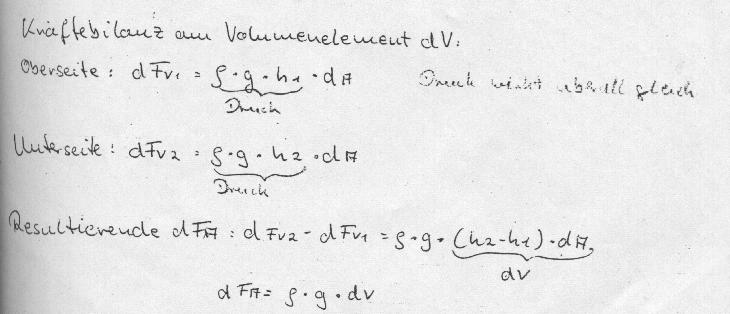 Kräftebilanz am Volumenelement dV:
Oberseite: dFv1 = ρ·g·h1·dA Druck wirkt überall gleich
Druck
Unterseite: dFv2 = ρ·g·h2·dA
Druck
Resultierende dFA: dFv2 - dFv1 = ρ·g·(h2-h1)·dA
dV
dFA = ρ·g·dV